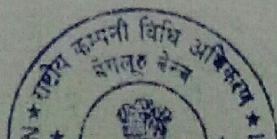 राष्ट्रीय कम्पनी विधि अधिकरण
बेंगलूरु बेन्च